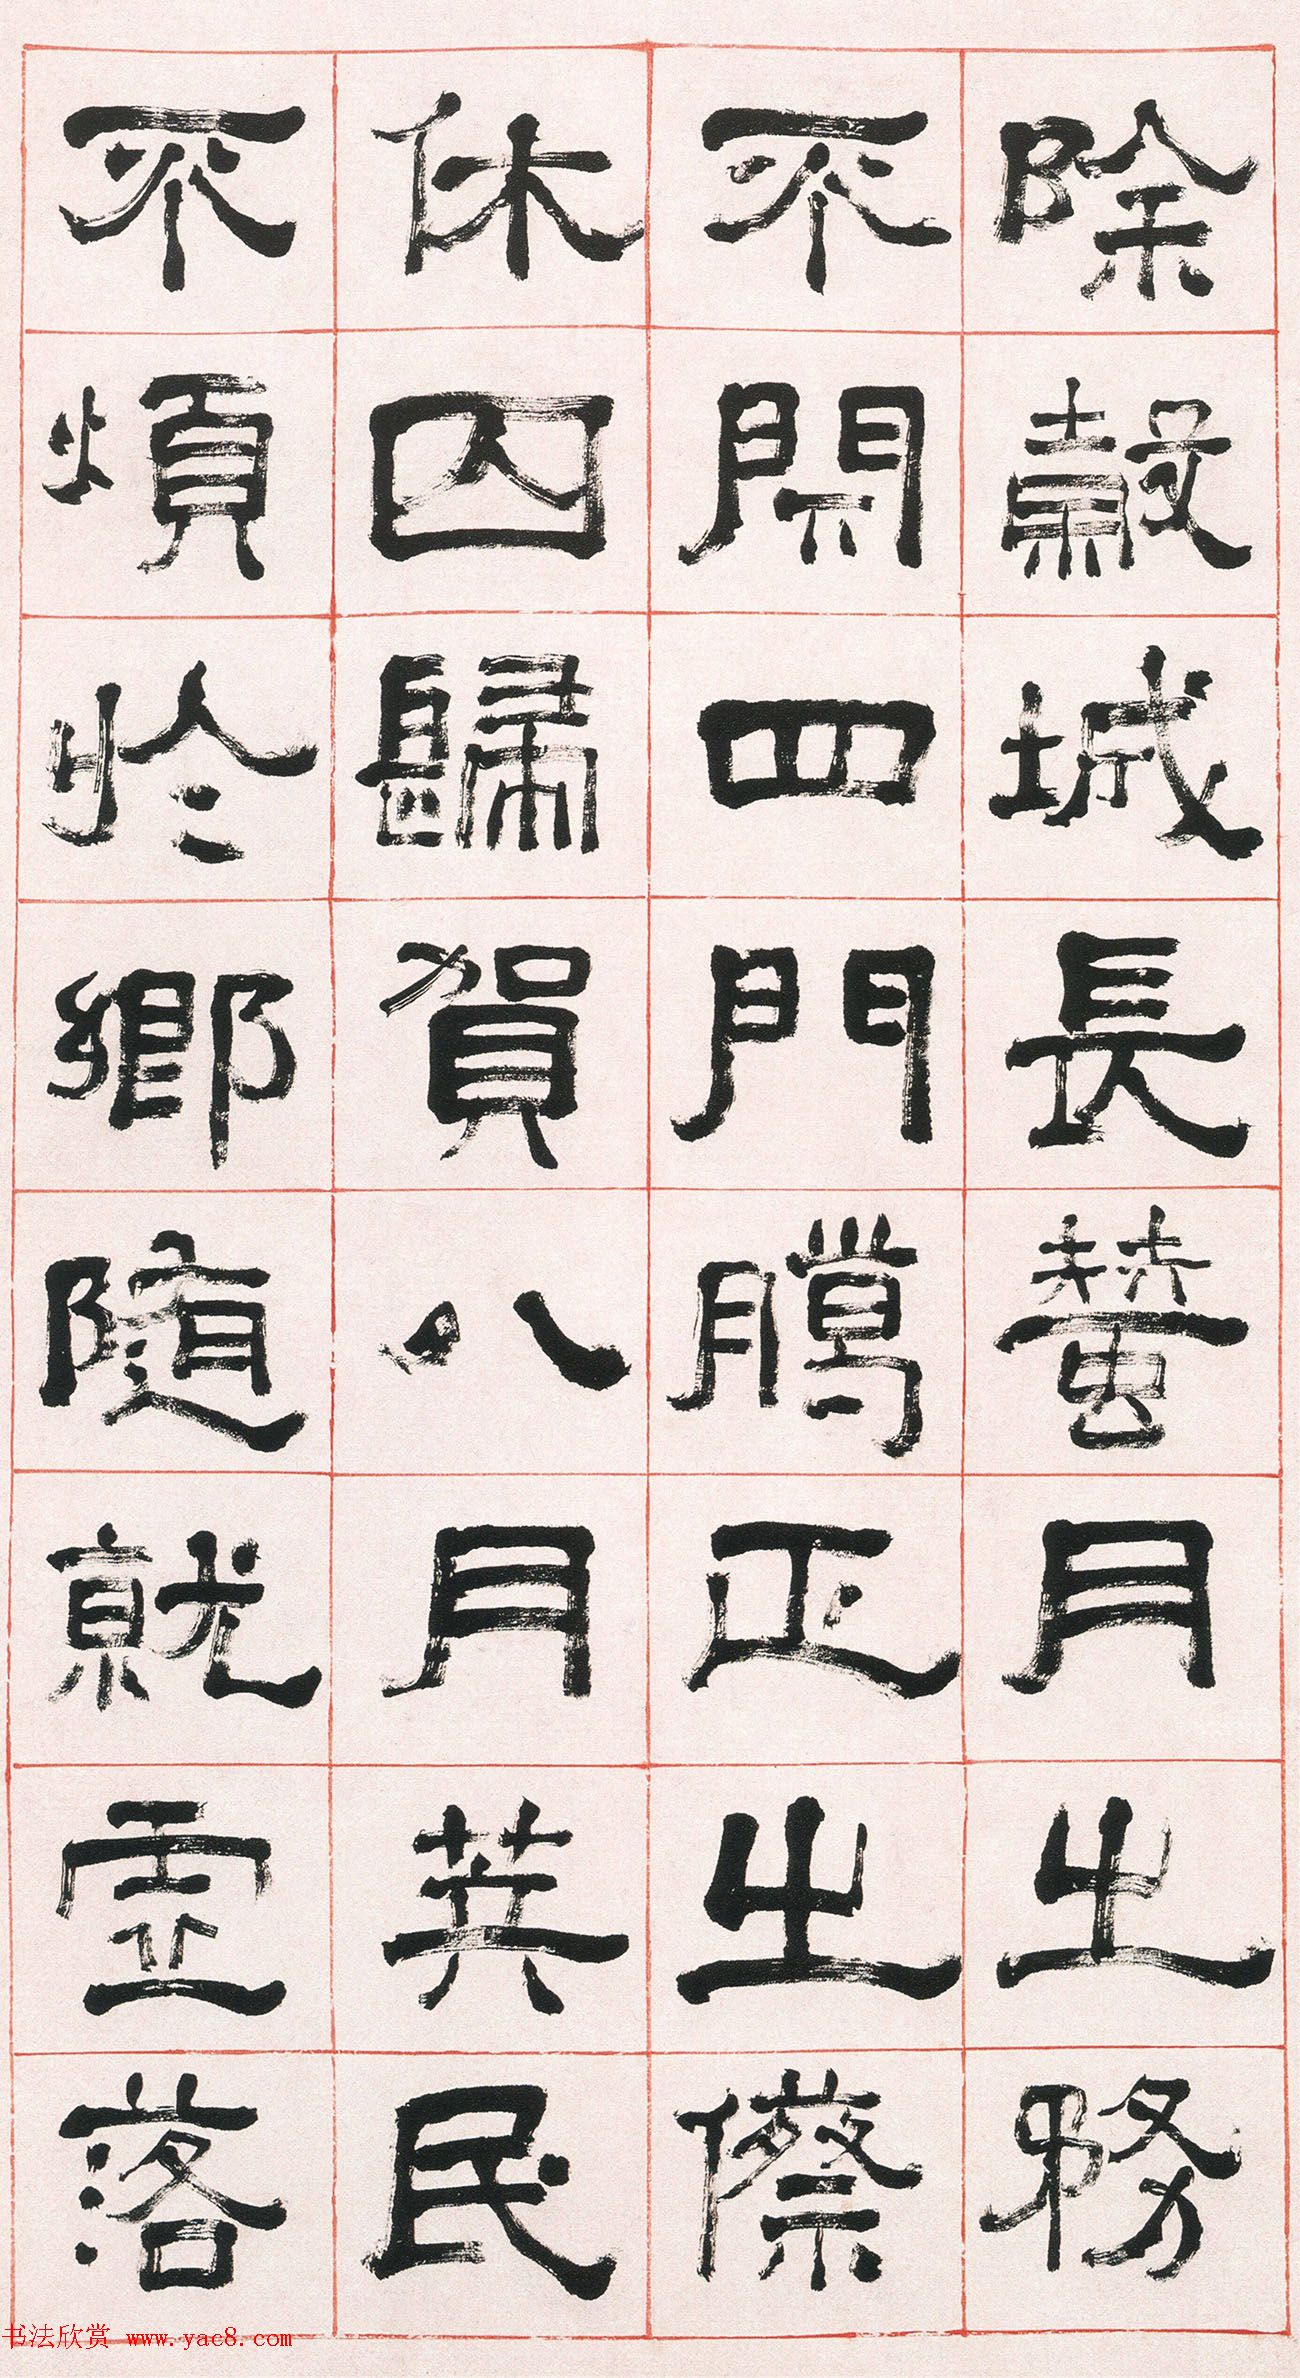 除穀城長蠶月之務
不閉四門臈正之傺
休囚歸賀八月䇲民
不煩於鄉隨就虛落
书法欣赏 www.yac8.com